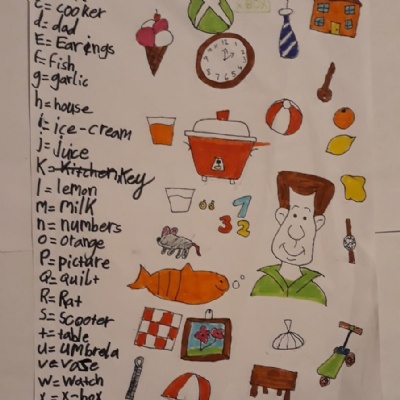 C= cooker
d= dad
E= Earings
f= fish
g= garlic
h= house
i= ice-cream
j= juice
K= Kitchen Key
l= lemon
m= Milk
n= numbers
o= orange
P= picture
Q= quilt
R= Rat
S= Scooter
t= table
u= umbrela
v= vase
w= watch
x= x-box
XBOX
7
3 2